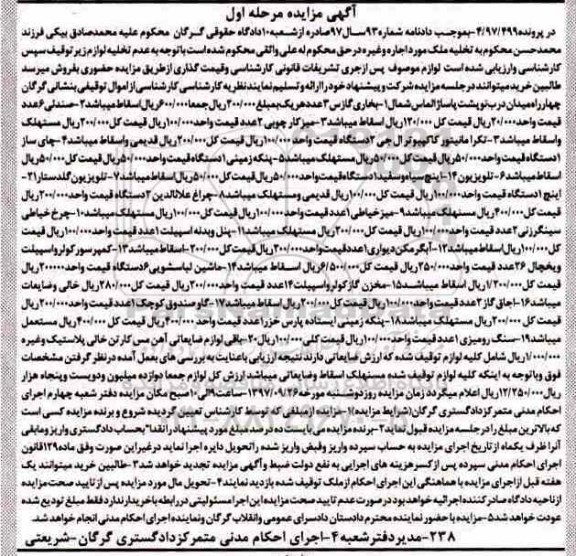 آگهی مزایده مرحله اول
در پرونده 4/97/499-بموجب دادنامه شماره 93سال97صادره ازشعبه10دادگاه حقوقی گرگان محکوم علیه محمدصادق بیکی فرزند
محمدحسن محکوم به تخلیه ملک مورد اجاره وغیره درحق محکوم له علی واثقی محکوم شده است باتوجه به عدم تخلیه لوازم زیر توقیف سپس
کارشناسی وارزیابی شده است لوازم موصوف پس ازجری تشریفات قانونی کارشناسی وقیمت گذاری ازطریق مزایده حضوری بفروش میرسد
طالبین خرید میتوانند درجلسه مزایده شرکت وپیشنهاد خود را ارائه و تسلیم نمایند نظریه کارشناسی کارشناسی ازاموال توقیفی بنشانی گرگان
چهارراه میدان درب نوشت پاساژ الماس شمال1-بخاری گازی3عددهریک بمبلغ200/000ریال جمعا600/000ریال اسقاط میباشد2-صندلی6عدد
قیمت واحد20/000ریال قیمت کل120/000ریال اسقاط میباشد3-میزکارچوبی2عدد قیمت واحد100/000ریال قیمت کل200/000ریال مستهلک
واسقاط میباشد3-تکرا مانیتور کامپیوتر ال جی2دستگاه قیمت واحد100/000ریال قیمت کل200/000ریال قدیمی واسقاط میباشد4-چای ساز
1دستگاه قیمت واحد50/000ریال قیمت کل50/000ریال مستهلک میباشد5-پنکه زمینی1دستگاه قیمت واحد50/000ریال قیمت کل50/000ریال
اسقاط میباشد6-تلویزیون14-اینچ سیاه وسفید1دستگاه قیمت واحد50/000ریال قیمت کل50/000ریال اسقاط میباشد7-تلویزیون گلدستار21-
اینچ1دستگاه قیمت واحد100/000ریال قیمت کل100/000ریال قدیمی ومستهلک میباشد8-چراغ علاالدین2دستگاه قیمت واحد200/000ریال
قیمت کل400/000ریال مستهلک میباشد9-میزخیاطی1عدد قیمت واحد100/000ریال قیمت کل100/000ریال مستهلک میباشد10-چرخ خیاطی
سینگرزنی2عدد قیمت واحد100/000ریال قیمت کل200/000ریال مستهلک میباشد11-پنل وبدنه اسپیلت1عدد قیمت واحد100/000ریال قیمت
کل100/000ریال اسقاط میباشد12-آبگرمکن دیواری1عددقیمت واحد200/000ریال قیمت کل200/000-اسقاط میباشد13-کمپرسور کولر واسپیلت
ویخچال26عدد قیمت واحد250/000ریال قیمت کل6/500/000ریال اسقاط میباشد14-ماشین لباسشویی6دستگاه قیمت واحد200000ریال
قیمت کل1/200/000ریال اسقاط میباشد15-مخزن گاز کولر واسپیلت14عدد قیمت واحد20/000ریال قیمت کل280/000ریال خالی وضایعات
میباشد16-اجاق گاز2عدد قیمت واحد100/000ریال قیمت کل200/000ریال اسقاط میباشد17-گاوصندوق کوچک1عدد قیمت واحد200/000ریال
قیمت کل200/000ریال مستهلک میباشد18-پنکه زمینی ایستاده پارس خزر1عدد قیمت واحد400/000ریال قیمت کل400/000ریال مستعمل
میباشد19-سنگ رومیزی1عدد قیمت واحد100/000ریال قیمت کلی100/000ریال20-باقی لوازم ضایعاتی آهن مس کارتن خالی پلاستیک وغیره
1/000/000ریال شامل کلیه لوازم توقیف شده که ارزش ضایعاتی دارند نتیجه ارزیابی باعنایت به بررسی های بعمل آمده درنظر گرفتن مشخصات
فوق وباتوجه به اینکه کلیه لوازم توقیف شده مستهلک اسقاط وضایعاتی میباشد ارزش کل لوازم جمعا دوازده میلیون ودویست وپنجاه هزار
ریال12/250/000ریال اعلام میگردد زمان مزایده روزدوشنبه مورخه1397/09/26-ساعت9الی10صبح مکان مزایده دفتر شعبه چهارم اجرای
احکام مدنی متمرکز دادگستری گرگان(شرایط مزایده)1-مزایده ازمبلغی که توسط کارشناس تعیین گردیده شروع و برنده مزایده کسی است
که بالاترین مبلغ را درجلسه مزایده قبول نماید2-برنده مزایده می بایست ده درصد مبلغ مورد پیشنهاد رانقدا"بحساب دادگستری واریز ومابقی
آنرا ظرف یکماه ازتاریخ اجرای مزایده به حساب سپرده واریز وفیش واریز شده راتحویل دایره اجرا نماید درغیراین صورت وفق ماده129قانون
اجرای احکام مدنی سپرده پس ازکسر هزینه های اجرایی به نفع دولت ضبط وآگهی مزایده تجدید خواهد شد3-طالبین خرید میتوانند یک
هفته قبل ازاجرای مزایده با هماهنگی این اجرای احکام ازملک توقیف شده بازدید نمایند4-تحویل مال مورد مزایده پس ازتایید صحت مزایده
ازناحیه دادگاه صادرکننده اجرائیه خواهد بود درصورت عدم تایید صحت مزایده این اجرا مسئولیتی دررابطه باخریدار ندارد فقط مبلغ تودیع شده
عودت خواهد شد5-مزایده با حضور نماینده محترم دادستان دادسرای عمومی وانقلاب گرگان ونماینده اجرای احکام مدنی انجام خواهد شد.
238-مدیردفترشعبه4-اجرای احکام مدنی متمرکز دادگستری گرگان-شریعتی